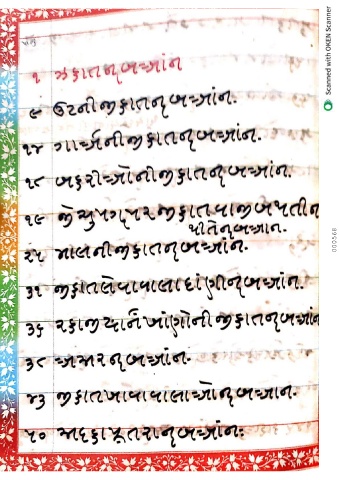 ૧ ઝકાતનુ બઆંન
૯ ઉટની જકાતનુ બઆંન.
૧૪ ગાઅેની જકાતનુ બઆંન.
૧૮ બકરીઓની જકાતનુ બઆંન.
૧૯ જે ચુપગપર જકાત વાજબ થતી ન
થીતેનુ બઆન.
૨૫ માલની જકાતનુ બઆંન.
૩૧ જકાત લેવાવાલા ધાંણીનુ બઆંન.
૩૬ રકાજ યાને ખાંણોની જકાતનુ બઆંન
૩૮ અસરનુ બઆંન.
૪૩ જકાત ખાવાવાલાઓનુ બઆન.
૫૦ સદકા ફુતરાનુ બઆંન:
Scanned with OKEN Scanner
000568